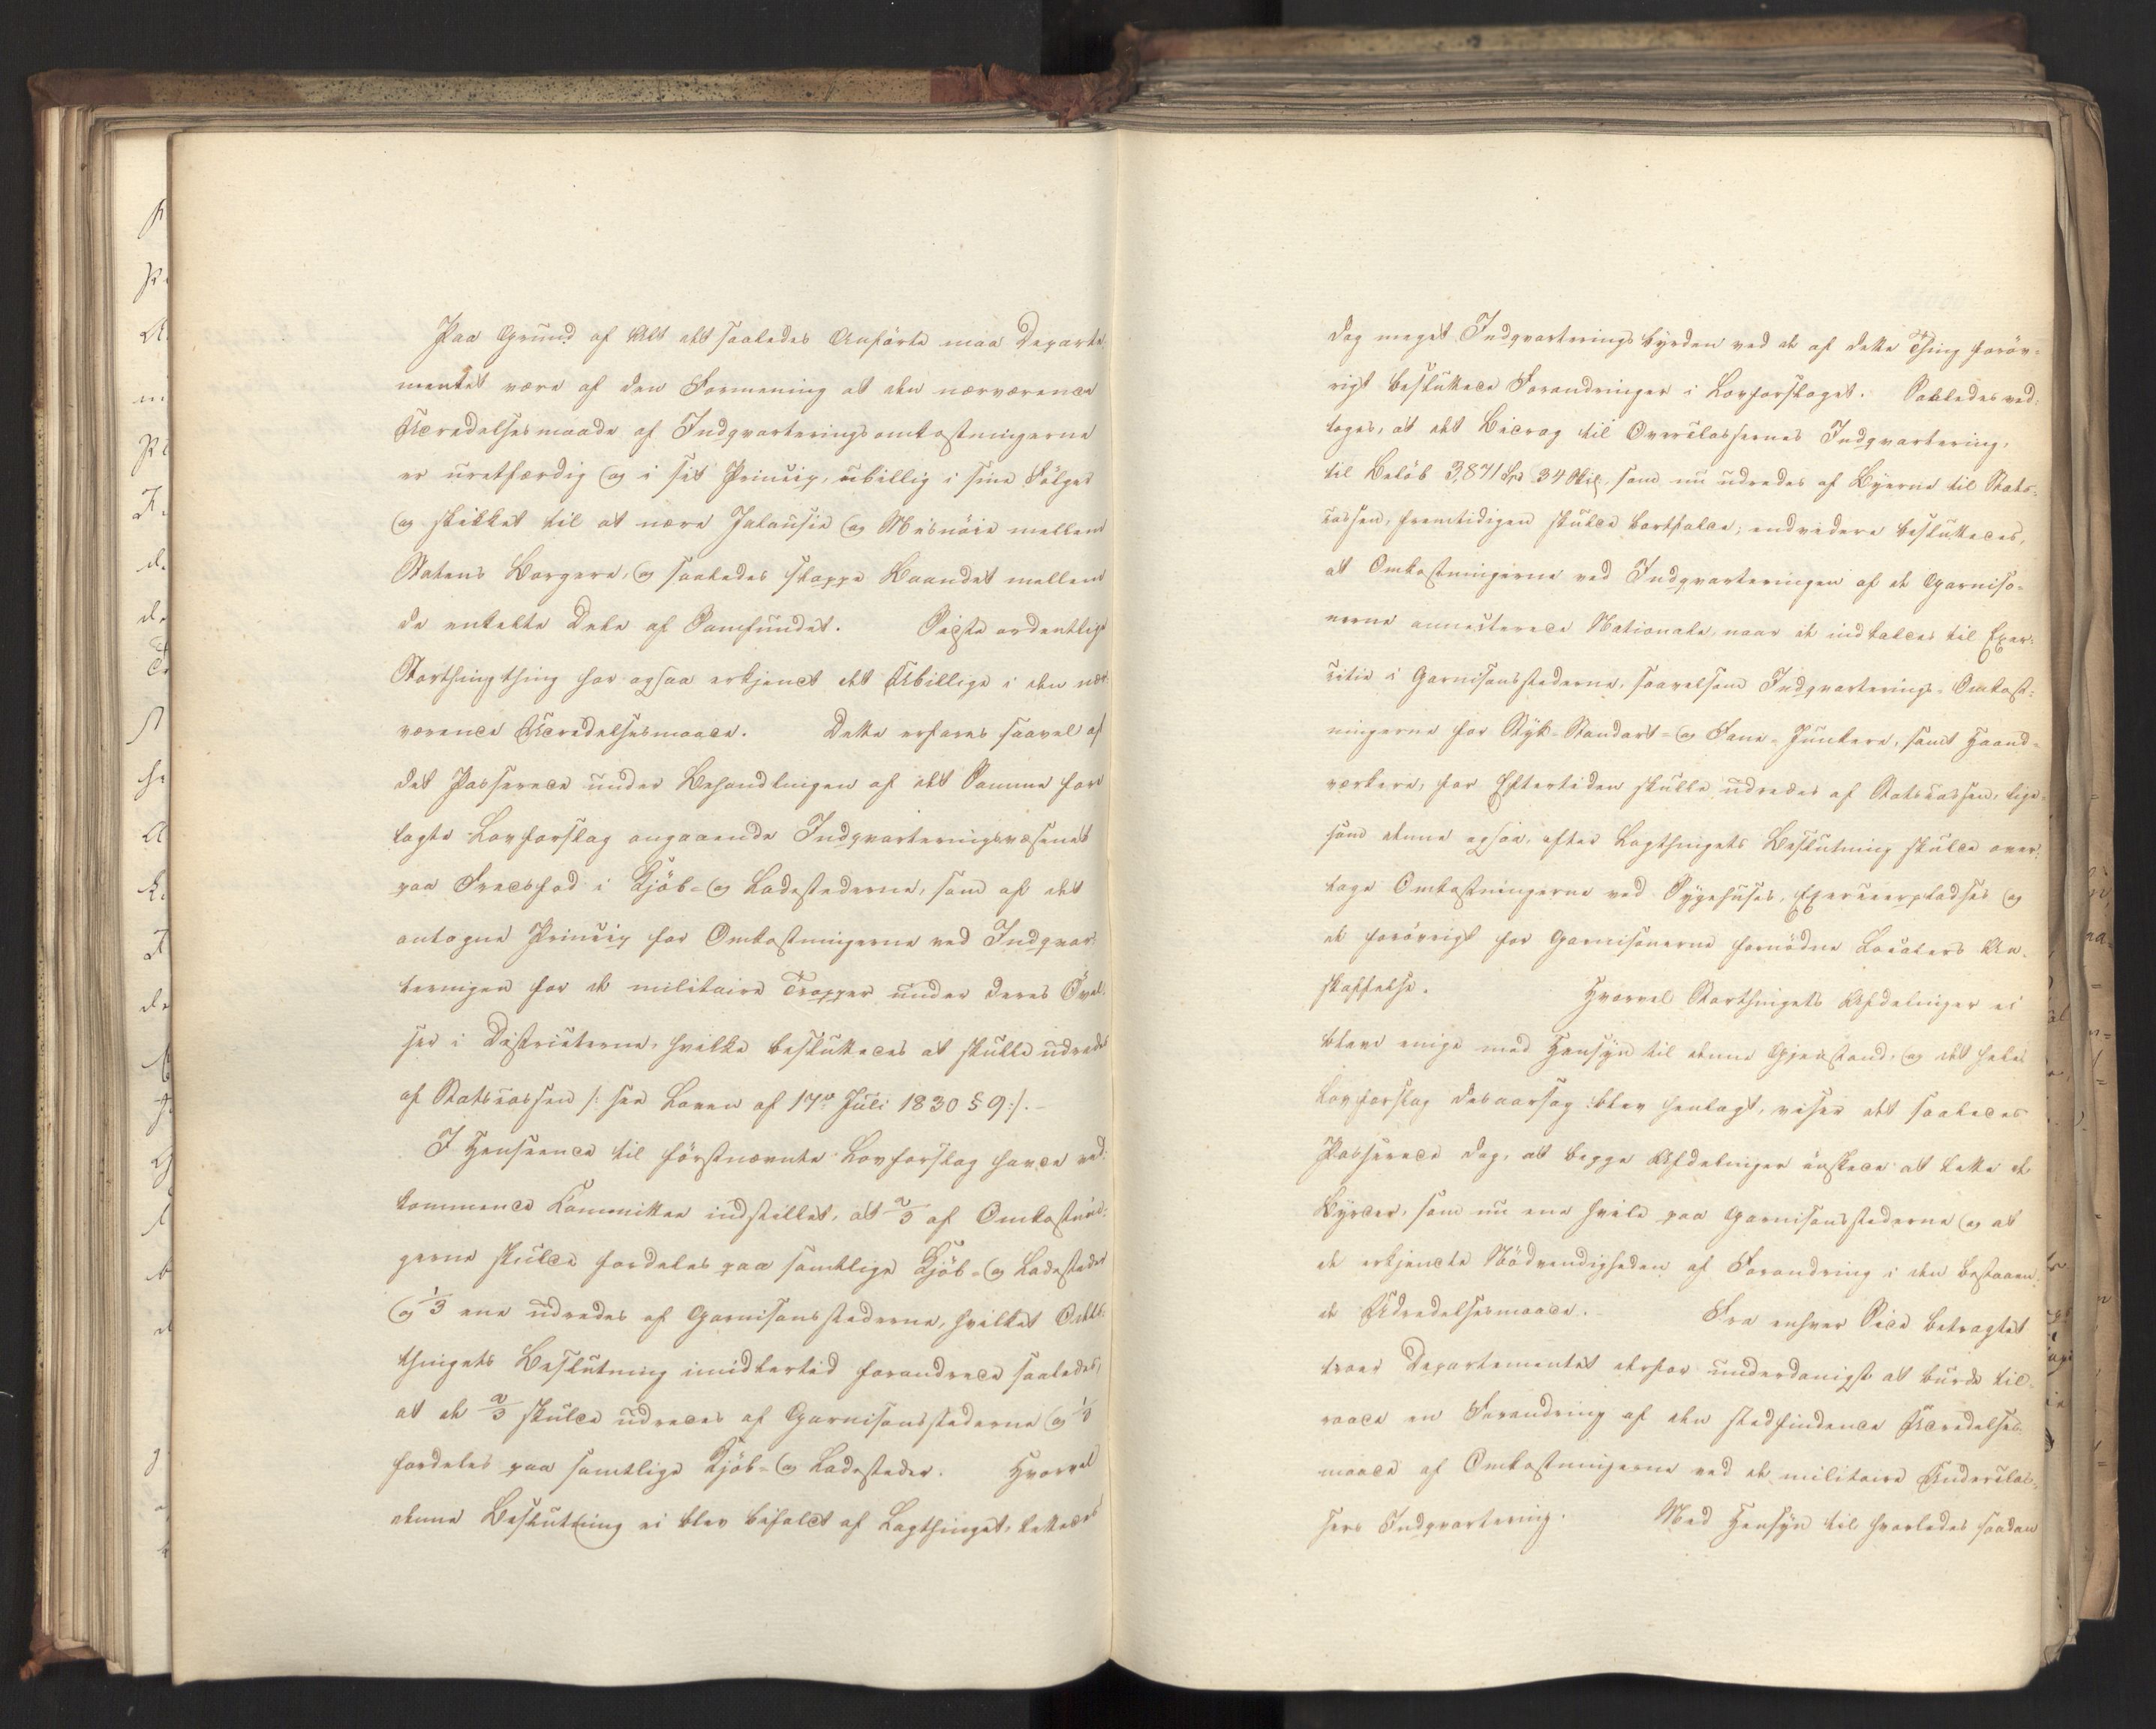 Paa Grund af Alt det saaledes Anførte maa Departe-
mentet være af den Formening at den nærværende
Udredelsesmaade af Indqvarteringsomkostningerne
er uretfærdig og i sit Princip, ubillig i sine Følger
og skikket til at nære Jalousie og Misnöie mellem
Statens Borgere, og saaledes slappe Baandet mellem
de enkelte Dele af Samfundet. Sidste ordentlige
Storthingthing har ogsaa erkjendt det Ubillige i den nær-
værende Udredelsesmaade. Dette erfares saavel af
det Passerede under Behandlingen af det Samme fore
lagte Lovforslag angaaende Indqvarteringsvæsenet
paa Fredsfod i Kjöb- og Ladestederne, som af det
antagne Princip for Omkostningerne ved Indqvar-
teringen for de militaire Tropper under deres Övel-
ser i Districterne, hvilke besluttedes at skulle udredes
af Statscassen /: see Loven af 17de Juli 1830 § 9 :/. -
I Henseende til förstnævnte Lovforslag havde ved-
kommende Committee indstillet, at 2/3 af Omkostnin-
gerne skulde fordeles paa samtlige Kjöb- og Ladesteder
og 1/3 ene udredes af Garnisonsstederne, hvilket Odels-
thingets Beslutning imidlertid forandrede saaledes,
at de 2/3 skulde udredes af Garnisonsstederne og 1/3
fordeles paa samtlige Kjöb- og Ladesteder. Hvorvel
denne Beslutning ei blev bifaldt af Lagthinget, lettedes
dog meget Indqvarteringsbyrden ved de af dette Thing foröv-
rigt besluttede Forandringer i Lovforslaget. Saaledes ved-
toges, at det Bidrag til Overclassernes Indqvartering,
til Belöb 3,871 Spd 34 Skil, som nu udredes af Byerne til Stats-
cassen, fremtidigen skulde bortfalde; endvidere besluttedes,
at Omkostningerne ved Indqvarteringen af de Garniso-
nerne annecterede Nationale, naar de indkaldes til Exer-
citie i Garnisonsstederne, saavelsom Indqvarterings-Omkost-
ningerne for Styk- Standart- og Fane-Junkere, samt Haand-
værkere, for Eftertiden skulle udredes af Statscassen, lige-
som denne ogsaa, efter Lagthingets Beslutning skulde over-
tage Omkostningerne ved Sygehuses, Exerceerpladses og
de forövrigt for Garnisonerne fornödne Localers An-
skaffelse. Hvorvel Storthingets Afdelinger ei
bleve enige med Hensyn til denne Gjenstand, og det hele
Lovforslag desaarsag blev henlagt, viser det saaledes
Passerede dog, at begge Afdelinger önskede at lette de
Byrder, som nu ene hvile paa Garnisonsstederne og at
de erkjendte Nödvendigheden af Forandring i den bestaaen-
de Udredelsesmaade. - Fra enhver Side betragtet
troer Departementet derfor underdanigst at burde til-
raade en Forandring af den stedfindende Udredelses-
maade af Omkostningerne ved de militaire Underclas-
sers Indqvartering. Med Hensyn til hvorledes saadan